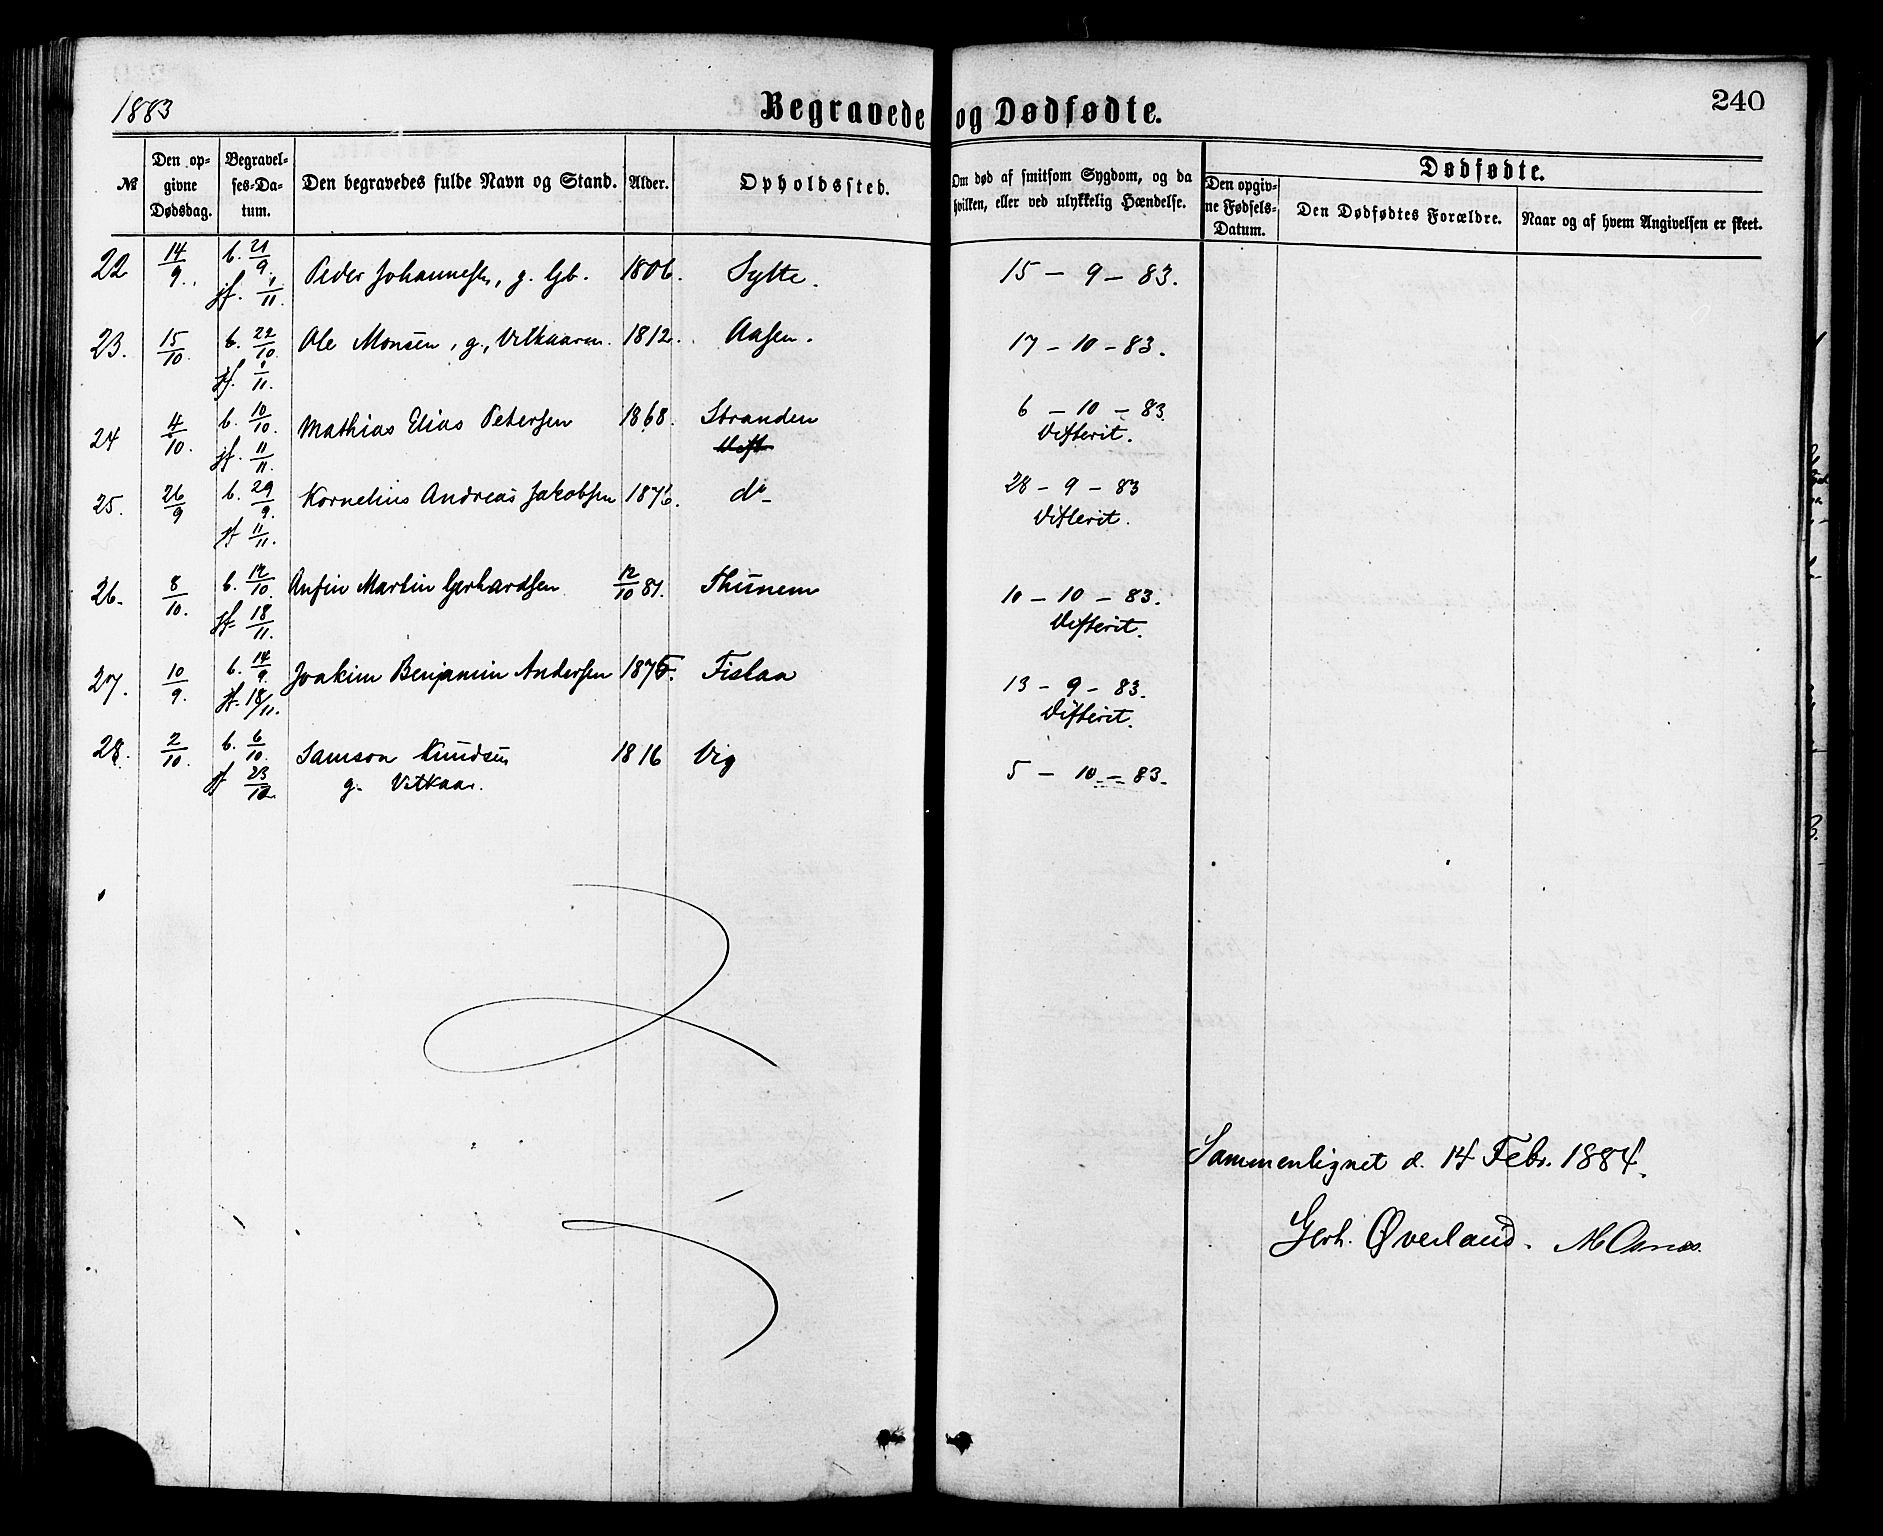 1883
Begravede og Dødfødte.
240
№
Den op-
givne
Dødsdag.
Begravel-
ses-Da-
tum.
Den begravedes fulde Navn og Stand.
Alder.
Opholdssted.
Om død af smitsom Sygdom, og da
hvilken, eller ved ulykkelig Hændelse.
Dødfødte.
Den opgiv-
ne Fødsels-
Datum.
Den Dødfødtes Forældre.
Naar og af hvem Angivelsen er skeet.
22 14/9. b. 21/9. Peder Johannessen, g. Gb. 1806. Sylte. 15 - 9 - 83.
jf. 1/11.
23. 15/10. b. 22/10. Ole Monsen, g., Vilkaarm. 1812. Aasen. 17 - 10 - 83.
jf. 1/11.
24 4/10. b. 10/10. Mathias Elias Petersen 1868. Stranden 6 - 10 - 83.
jf. 11/11. Difterit.
25. 26/9 b. 29/9. Kornelius Andreas Jakobsen 1876. do 28 - 9 - 83
jf 11/11. Difterit.
26. 8/10. b. 12/10. Anfin Martin Gerhardsen 12/10 81. Thunem 10 - 10 - 83.
jf. 18/11. Difterit.
27. 10/9. b. 14/9 Joakim Benjamin Andersen 1875. Fislaa 13 - 9 - 83.
jf. 18/11. Difterit.
28. 2/10. b. 6/10. Samson Knudsen 1816 Vig 5 - 10 - 83.
jf 23/12. g. Vilkaar.
Sammenlignet d. 14 Febr. 1884.
Gerh. Øverland. M Osnes.